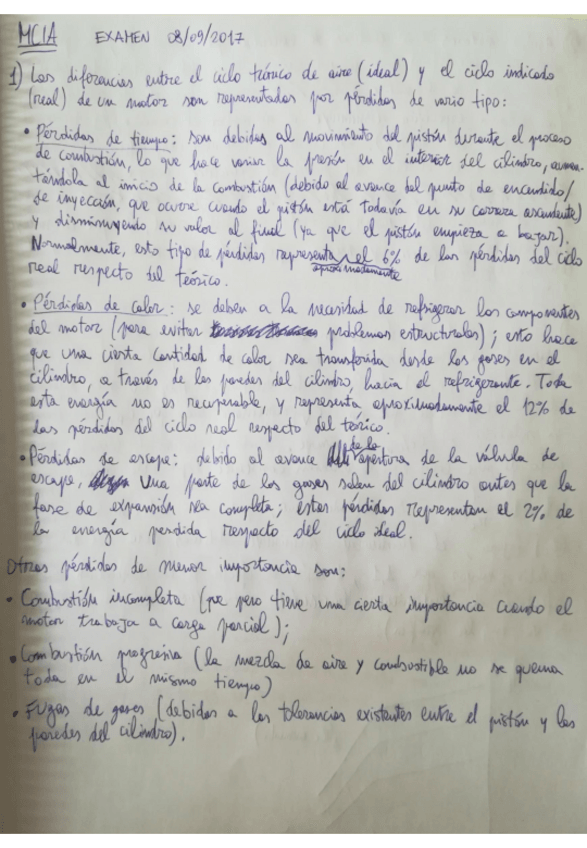 MCIA EXAMEN 08/09/2017
1) Las diferencias entre el ciclo teórico de aire (ideal) y el ciclo indicado
(real) de un motor son representadas por pérdidas de vario tipo:
• Pérdidas de tiempo: son debidas al movimiento del pistón durante el proceso
de combustión, lo que hace variar la presión en el interior del cilindro, aumen-
tándola al inicio de la combustión (debido al avance del punto de encendido/
de inyección, que ocurre cuando el pistón está todavía en su carrera ascendente)
y disminuyendo su valor al final (ya que el pistón empieza a bajar).
Normalmente, esto tipo de pérdidas representa el 6% de las pérdidas del ciclo
aproximadamente
real respecto del teórico.
• Pérdidas de calor: se deben a la necesidad de refrigerar los componentes
del motor (para evitar problemas estructurales); esto hace
que una cierta cantidad de calor sea transferida desde los gases en el
cilindro, a través de las paredes del cilindro, hacia el refrigerante. Toda
esta energía no es recuperable, y representa aproximadamente el 12% de
las pérdidas del ciclo real respecto del teórico.
• Pérdidas de escape: debido al avance de la apertura de la válvula de
escape, una parte de los gases salen del cilindro antes que la
fase de expansión sea completa; estas pérdidas representan el 2% de
la energía perdida respecto del ciclo ideal.
Otras pérdidas de menor importancia son:
• Combustión incompleta (que pero tiene una cierta importancia cuando el
motor trabaja a carga parcial);
• Combustión progresiva (la mezcla de aire y combustible no se quema
toda en el mismo tiempo)
• Fugas de gases (debidas a las tolerancias existentes entre el pistón y las
paredes del cilindro).